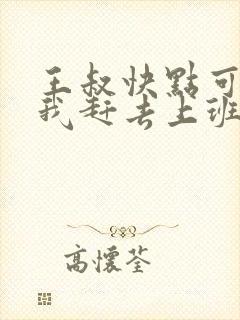 王叔快點可
我赶去上班
高懷荃